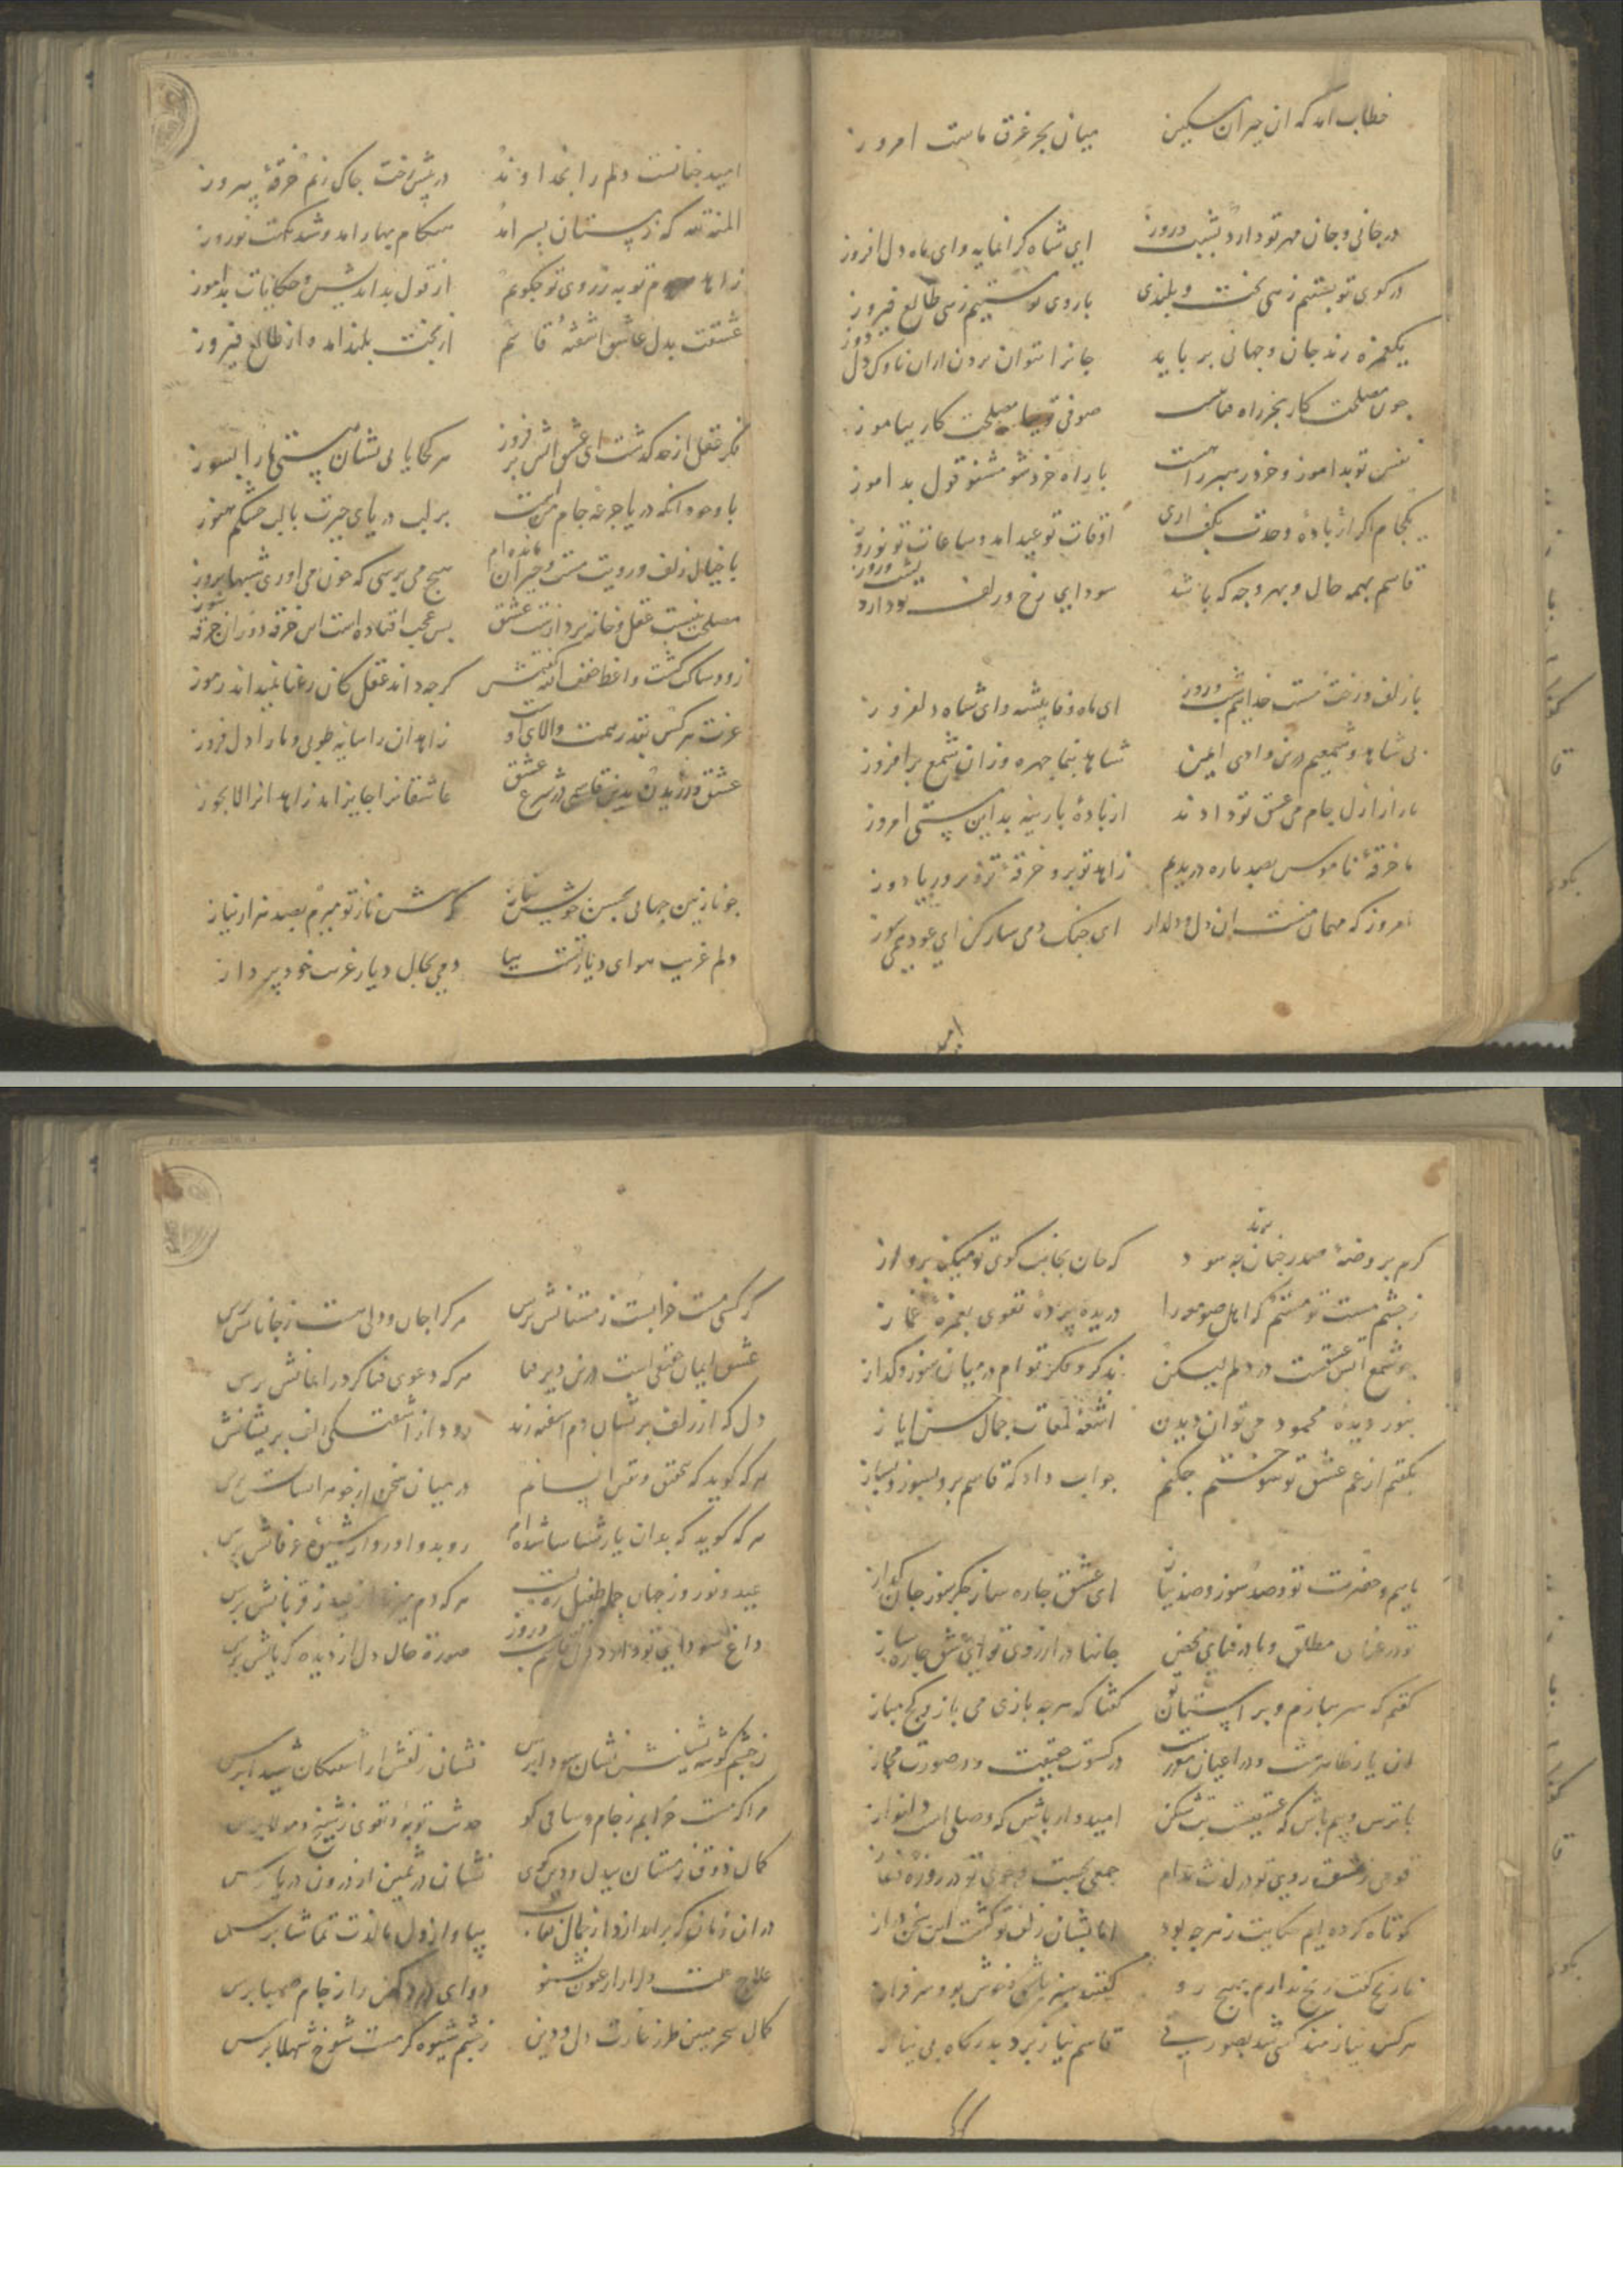 خطاب امد که ان حیران مسکین میان بحر غرق ماست امروز
در جانی و جان مهر تو دارد بشب و روز ای شاه کرانمایه وای ماه دل افروز
در کوی تو بستیم زهی تخت و بلندی باروی تو هستیم زهی طالع فیروز
یکغمزه زند جان و جهانی برباید جانرا نتوان بردن ازان ناوک دل دوز
چون مصلحت کار بخر راه صوفی بیا مصلحت کار بیاموز
نفس تو بداموز و خرد رهبر راهست با راه خرد شو مشنو قول بداموز
یکجام اکر از بادهٔ وحدت بکف اری اوقات تو عید امد و ساعات تو نوروز
قاسم بهمه حال و بهر وجه که باشد سودایی رخ و زلف تو دارد بشب و روز
با زلف و رخت مست خدایم شب و روز ای ماه وفا پیشه وای شاه دلفروز
بی شاهد و شمعیم درین وادی ایمن شاها بنما چهره وزان شمع برافروز
مارا ز ازل جام می عشق تو دادند از بادهٔ پارینه بد این مستی امروز
ما خرقهٔ ناموس بصد پاره دریدیم زاهد تو برو خرقهٔ تزویر و ریا دوز
امروز که مهمان منست ان دل و دلدار ای چنک دمی ساز کن ای عود دمی سوز
امید
امید چنانست دلم را بخداوند در پیش رخت چاک زنم خرقهٔ پیروز
المنة لله که زمستان بسر امد هنکام بهار امد و شد نکهت نوروز
زاهد توبه ز روی تو چکویم از قول بداندیش و حکایات بداموز
عشقت بدل عاشق اشفتهٔ قاسم از بخت بلند امد و از طالع فیروز
فکر عقل از حد کذشت ای عشق اتش برفروز هر کجا یابی نشان هستی مارا بسوز
با وجود انکه دریا جرعهٔ جام منست بر لب دریای حیرت با لب خشکم هنوز
با خیال زلف و رویت مست و حیران مانده ام هیچ می پرسی که چون می اوری شبها بروز
مصلحت نیست عقل و خانه پردازست عشق بس عجب افتاده است این خرقه دوز ان خرقه سوز
زود ساکن کشت واعظ کرچه داند عقل کان رعنا نمیداند رموز
عزت هر کس بقدر همت والای اوست زاهدان را سایهٔ طوبی و مارا دل فروز
عشق ورزیدن بدین قاسمی در شرع عشق عاشقانرا جایز امد زاهدانرا لایجوز
چو نازنین جهانی بحسن خویش بناز بکش ناز تو میرم بصد هزار نیاز
دلم غریب هوای دیار تست بیا دمی بحال دیار غریب خود پرداز
کرم بروضهٔ صدر جنان برند چه سود که جان بجانب کوی تو میکند پرواز
ز چشم مست تو مستم که اهل صومعه را دریده پردهٔ تقوی بغمزهٔ غماز
چو شمع اتش عشقت در دلم لیکن بذکر و فکر تو ام در میان سوز و کداز
بنور دیدهٔ محمود می توان دیدن اشعهٔ لمعات جمال حسن ایاز
بکفتم از غم عشق تو سوختم چکنم جواب داد که قاسم برو بسوز و بساز
ماییم و حضرت تو و صد سوز و صد نیاز ای عشق چاره ساز جکرسوز جان کداز
تو در غنای مطلق و ما در فنای محض جانها در ارزوی تو ای عشق چاره ساز
کفتم که سر ببازم و بر استان تو کفتا که هر چه بازی می باز و کج مباز
ان یار ظاهرست و در اعیان مصورست در کسوت حقیقت و در صورت مجاز
با ترس و بیم باش که عشقیست بت شکن امیدوار باش که وصلی است دلنواز
قومی ز عشق روی تو در لذت مدام جمعی
کوتاه کرده ایم حکایت ز هرچه بود اما بشان زلف تو کشت این سخن دراز
هر کس نیازمند کسی شد بصورتی قاسم نیاز برد بدرکاه بی نیاز
کر کسی مست خرابست ز مستانش پرس هر کرا جان و دلی هست ز جانانش پرس
عشق ایمان حقیقی است درین دیر فنا هر که دعوی فنا کرد ز ایمانش پرس
دل که از زلف پریشان دم اشفته زند رو از اشفتکی زلف پریشانش
هر که کوید که بحق و در میان سخن از
هر که کوید که بدان یار شناسا شده ام رو بدو اور و از شیوهٔ عرفانش پرس
عید و نوروز جهان جمله طفیل هر که دم ز قربانش پرس
داغ سودایی تو دارد دل قاسم شب و روز صورت حال دل از دیدهٔ کریانش پرس
ز چشم کوشه نشینش نشان سودا پرس نشان زلفش از اشفتکان شیدا پرس
مرا که مست خرابم ز جام و ساقی کو حدیث توبه و تقوی ز شیخ و مولا پرس
کمال ذوق ز مستان بیدل و دین جوی نشان در ثمین از درون دریا پرس
در ان زمان که براندازد از جمال نقاب بیا و از دل ما لذت تماشا پرس
علاج دوای درد کهن را ز جام صهبا پرس
کمال سحر مبین طرز غارت دل و دین ز چشم شیوه کر مست شوخ شهلا پرس